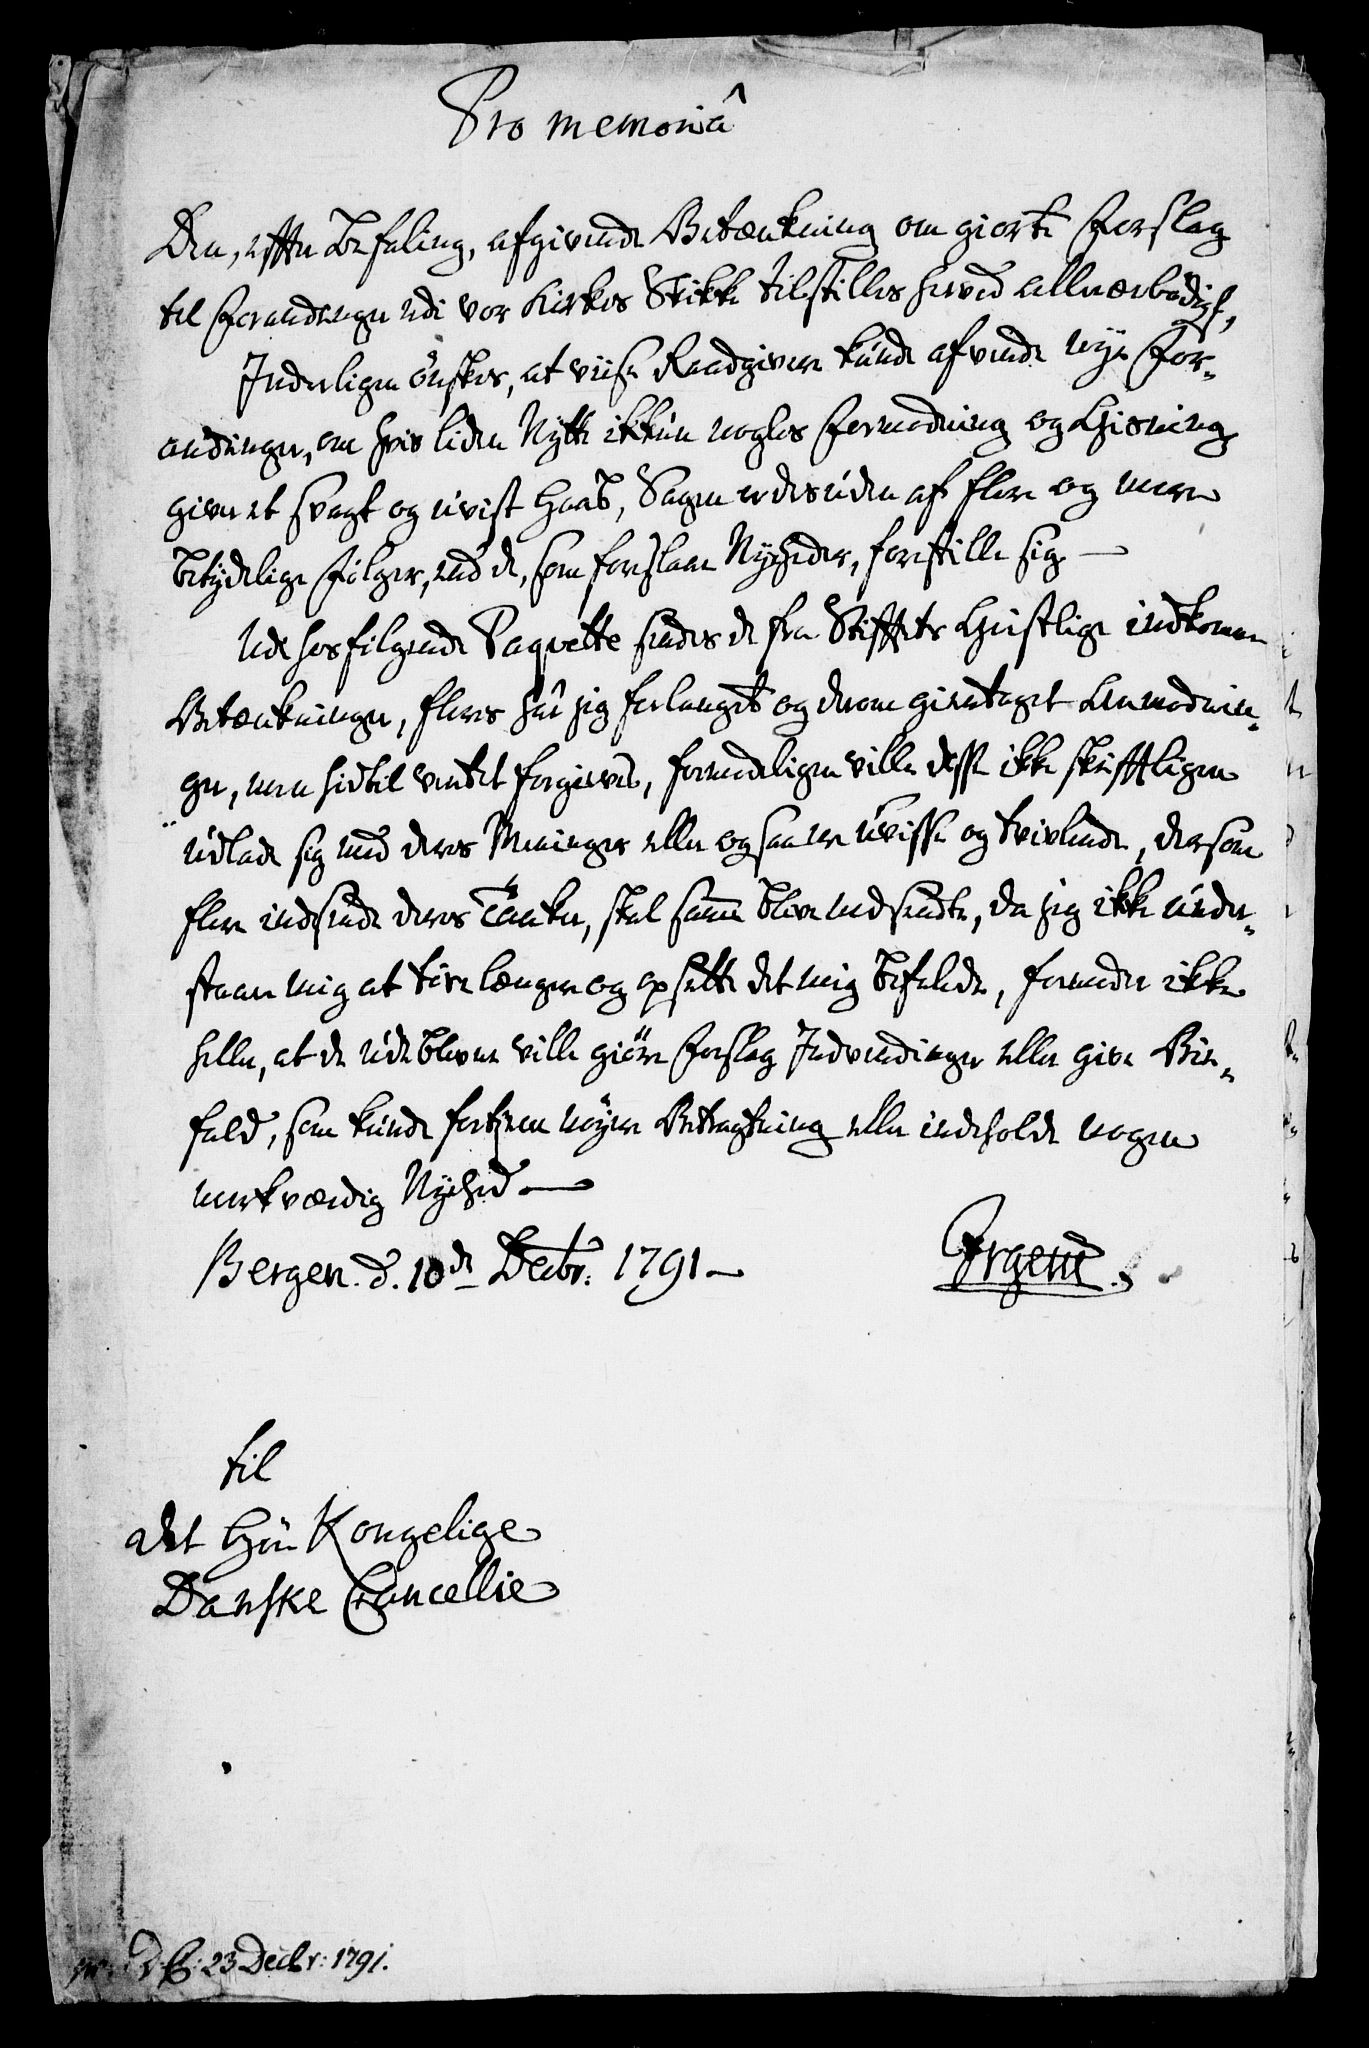 Pro memoriâ
Den, efter Befaling, afgivende Betænkning om giorte Forslag
til Forandringer udi vor Kirkes Skikke tilstilles herved allerærbødigst,
Inderligen önskes, at viise Raadgivere kunde afvende nye For-
andringer, om hvis liden Nytte ikkun nogles Formodning og Gisning
giver et svagt og uvist Haab, Sagen er desuden af flere og mere
betydelige Følger, end de, som foreslaae Nyeheder, forestille sig —
Udi hosfølgende Paqvette sendes de fra Stiftets Geistlige indkomne
Betænkninger, fleres har jeg forlanget og derom gientaget Anmodnin-
ger, men hidtil ventet forgieves, formodeligen ville disse ikke skriftligen
udlade sig med deres Meninger eller og saa ere uvisse og tvivlende, dersom
flere indsende deres Tanker, skal samme blive nedsendte, da jeg ikke under-
staaer mig at tøve længere og opsette det mig befalede, formoder ikke
heller, at de udeblevne ville giöre Forslag Indvendinger eller give Bie-
fald, som kunde fortiene nöyere Betragtning eller indeholde nogen
merkværdig Nyehed —
Bergen. d. 10de Decbr: 1791 —
Irgens.
Til
det Høi Kongelige
Danske Cancellie
D. C: 23 Decbr: 1791.